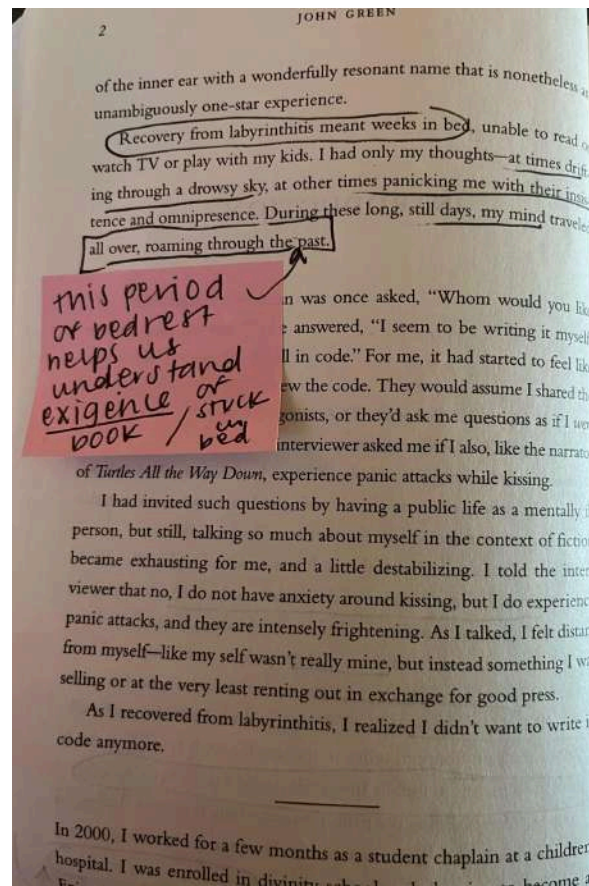 2
JOHN GREEN
of the inner ear with a wonderfully resonant name that is nonetheless
unambiguously one-star experience.
Recovery from labyrinthitis meant weeks in bed, unable to read
watch TV or play with my kids. I had only my thoughts—at times drift-
ing through a drowsy sky, at other times panicking me with their insis-
tence and omnipresence. During these long, still days, my mind traveled
all over, roaming through the past.
this period
of bedrest
helps us
understand
exigence of
book / stuck
in bed
n was once asked, “Whom would you like
e answered, “I seem to be writing it myself
ll in code.” For me, it had started to feel like
ew the code. They would assume I shared the
gonists, or they’d ask me questions as if I were
interviewer asked me if I also, like the narrator
of Turtles All the Way Down, experience panic attacks while kissing.
I had invited such questions by having a public life as a mentally
person, but still, talking so much about myself in the context of fiction
became exhausting for me, and a little destabilizing. I told the inter
viewer that no, I do not have anxiety around kissing, but I do experience
panic attacks, and they are intensely frightening. As I talked, I felt distan
from myself—like my self wasn’t really mine, but instead something I wa
selling or at the very least renting out in exchange for good press.
As I recovered from labyrinthitis, I realized I didn’t want to write
code anymore.
In 2000, I worked for a few months as a student chaplain at a children
hospital. I was enrolled in divinity
become a